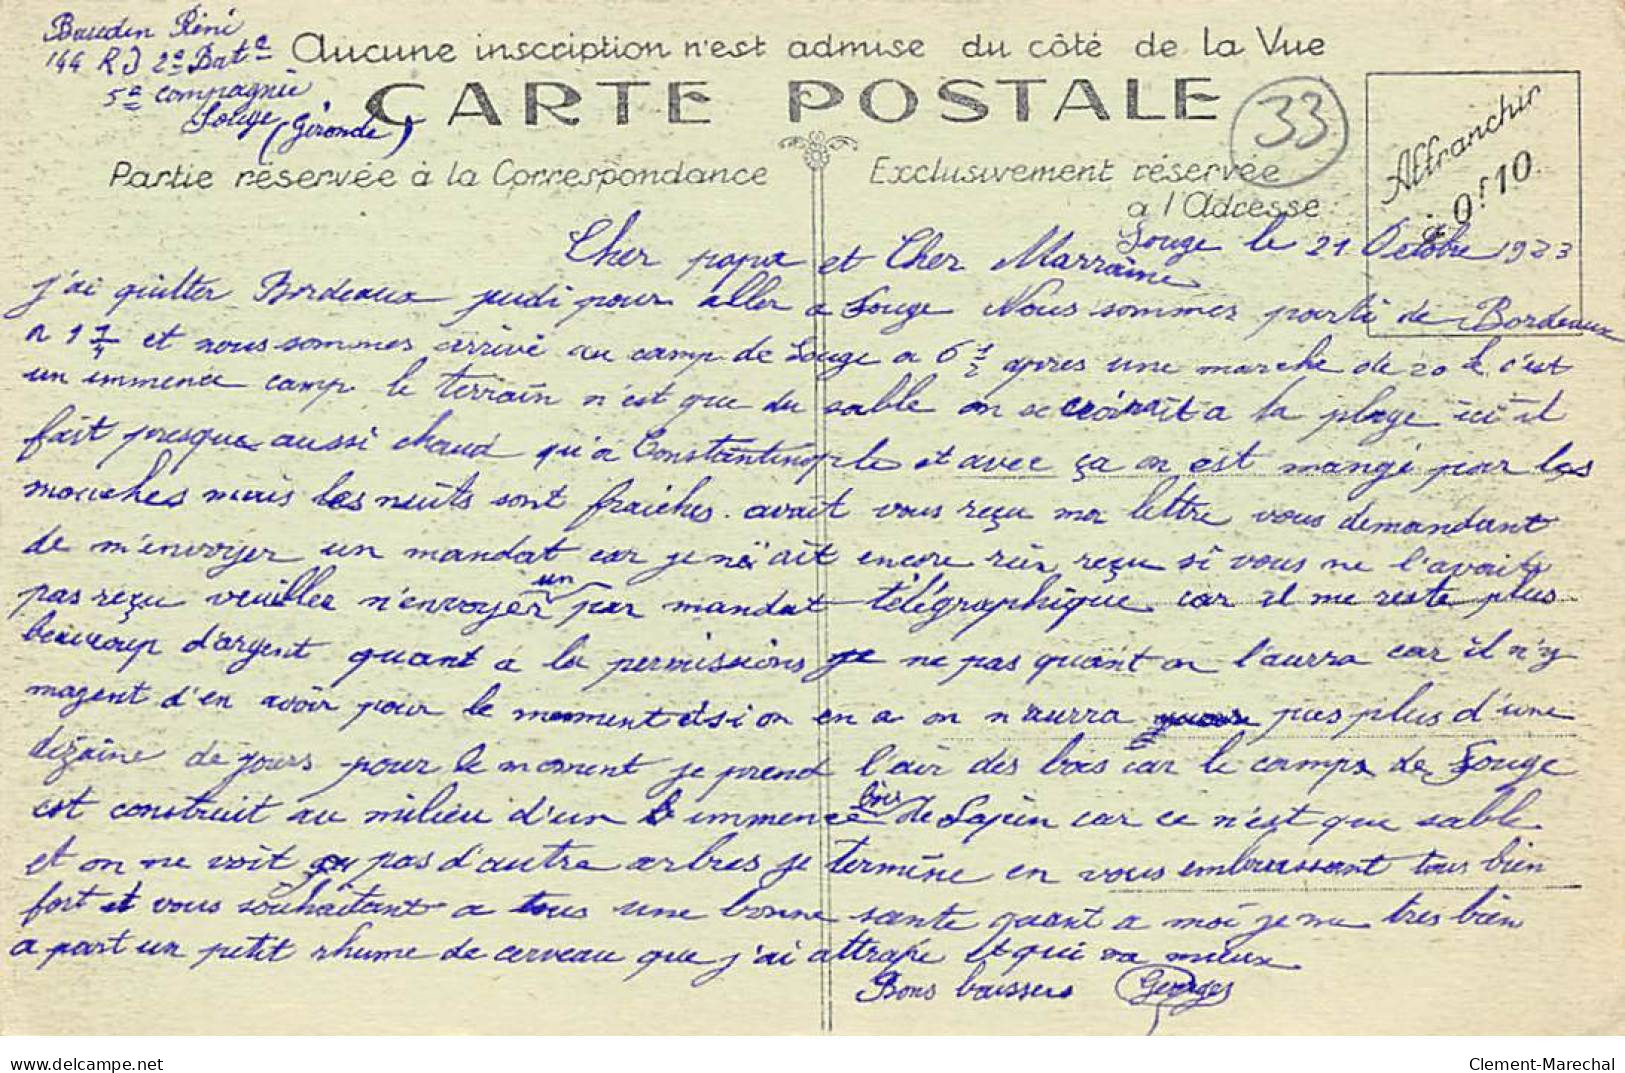 Baudin Réné
144 R I 2e Bat
5e compagnie
Souge (Gironde)
Aucune inscription n'est admise du côté de la Vue
CARTE POSTALE
33
Affranchir
à 0f10
Partie réservée à la Correspondance
Exclusivement réservée
a l'Adresse
Souge le 21 Octobre 1923
Cher papa et Cher Marraine
j'ai quitter Bordeaux jeudi pour aller a Souge Nous sommes parti de Bordeaux
a 1 1/4 et nous sommes arrivé au camp de Souge a 6 1/2 apres une marche de 20 k c'est
un immence camp le terrain n'est que du sable on se croirait a la plage ici il
fait presque aussi chaud qu'a Constantinople et avec ça on est mangé par les
mouches mais les nuits sont fraiches. avait vous reçu ma lettre vous demandant
de m'envoyer un mandat car je n'ait encore rien reçu si vous ne l'avait
pas reçu veuiller n'envoyer un par mandat télégraphique car il me reste plus
beaucoup d'argent quant a la permissions je ne pas quant on l'aurra car il n'y
magent d'en avoir pour le moment et si on en a on n'aurra pas plus d'une
dizaine de jours pour le moment je prend l'air des bois car le camps de Souge
est construit au milieu d'un immence bois de Sapin car ce n'est que sable
et on ne voit pas d'autre arbres je termine en vous embrassant tous bien
fort et vous souhaitant a tous une bonne sante quant a moi je me tres bien
a part un petit rhume de cerveau que j'ai attrape et qui va mieux
Bons baissers Georges
delcampe.net
Clement-Marechal